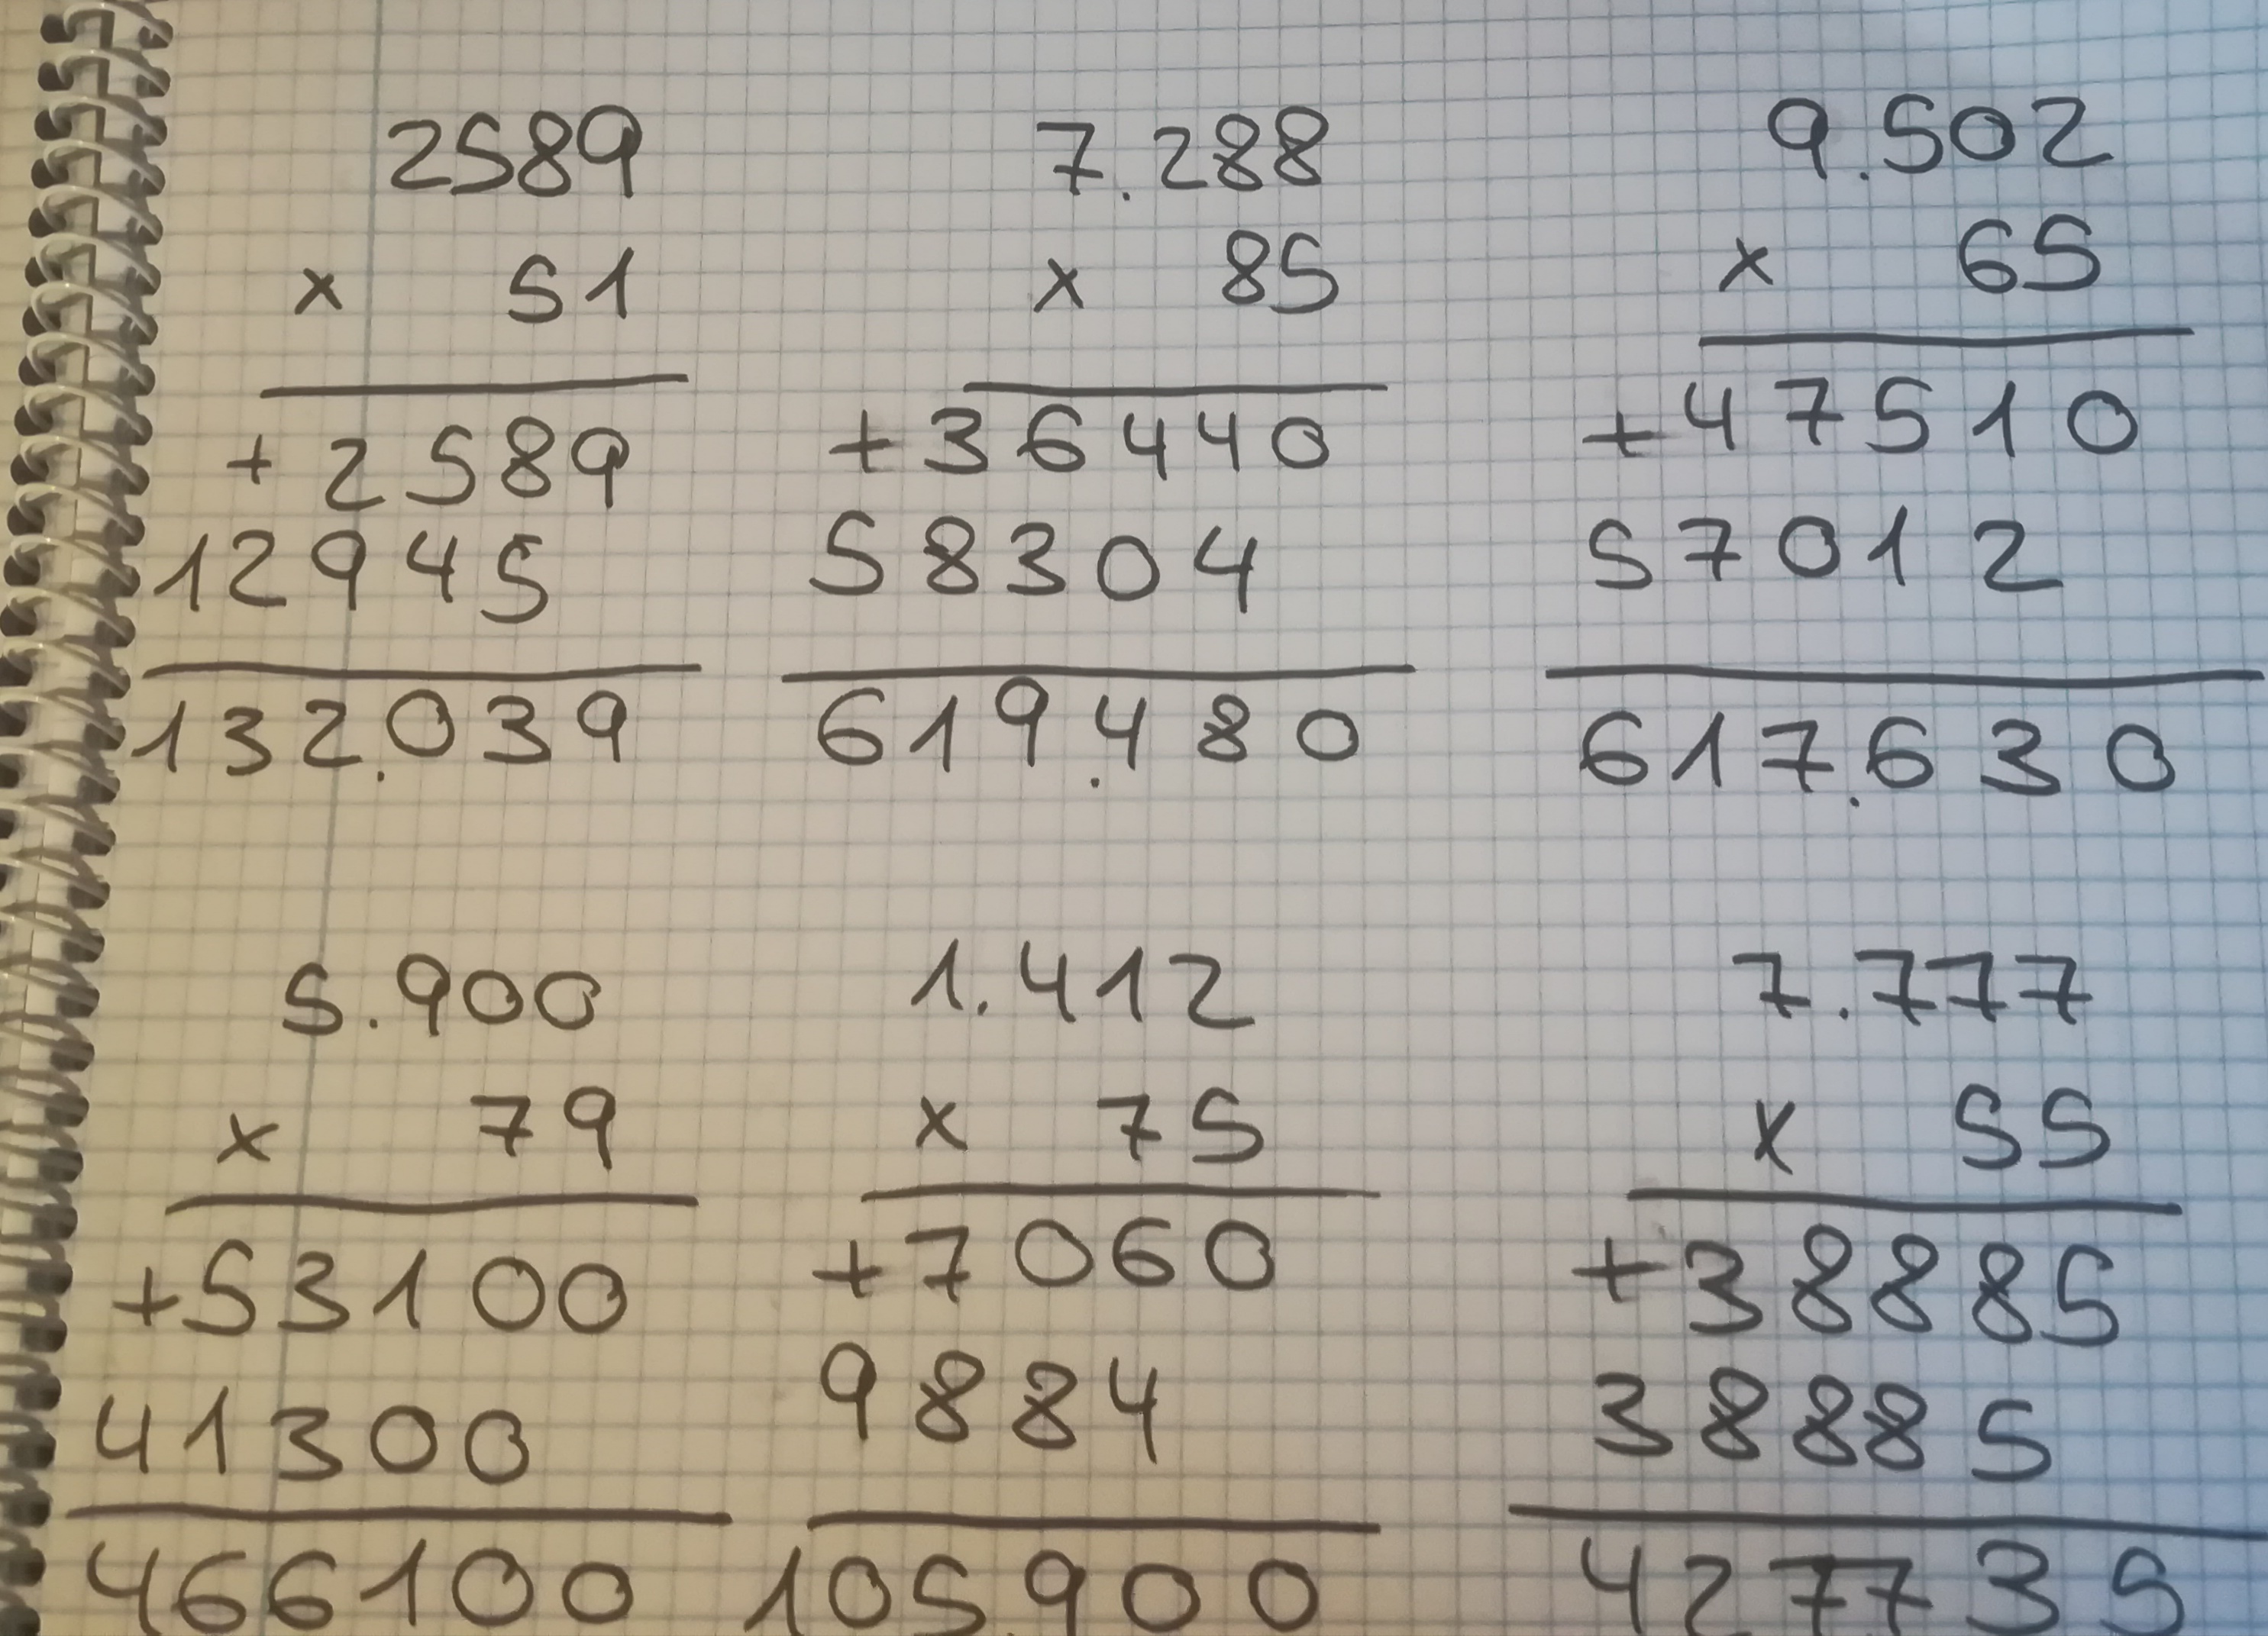 2589 7.288 9.502
x 51 x 85 x 65
+2589 +36440 +47510
12945 58304 57012
132.039 619.480 617.630
5.900 1.412 7.777
x 79 x 75 x 55
+53100 +7060 +38885
41300 9884 38885
466100 105.900 427735